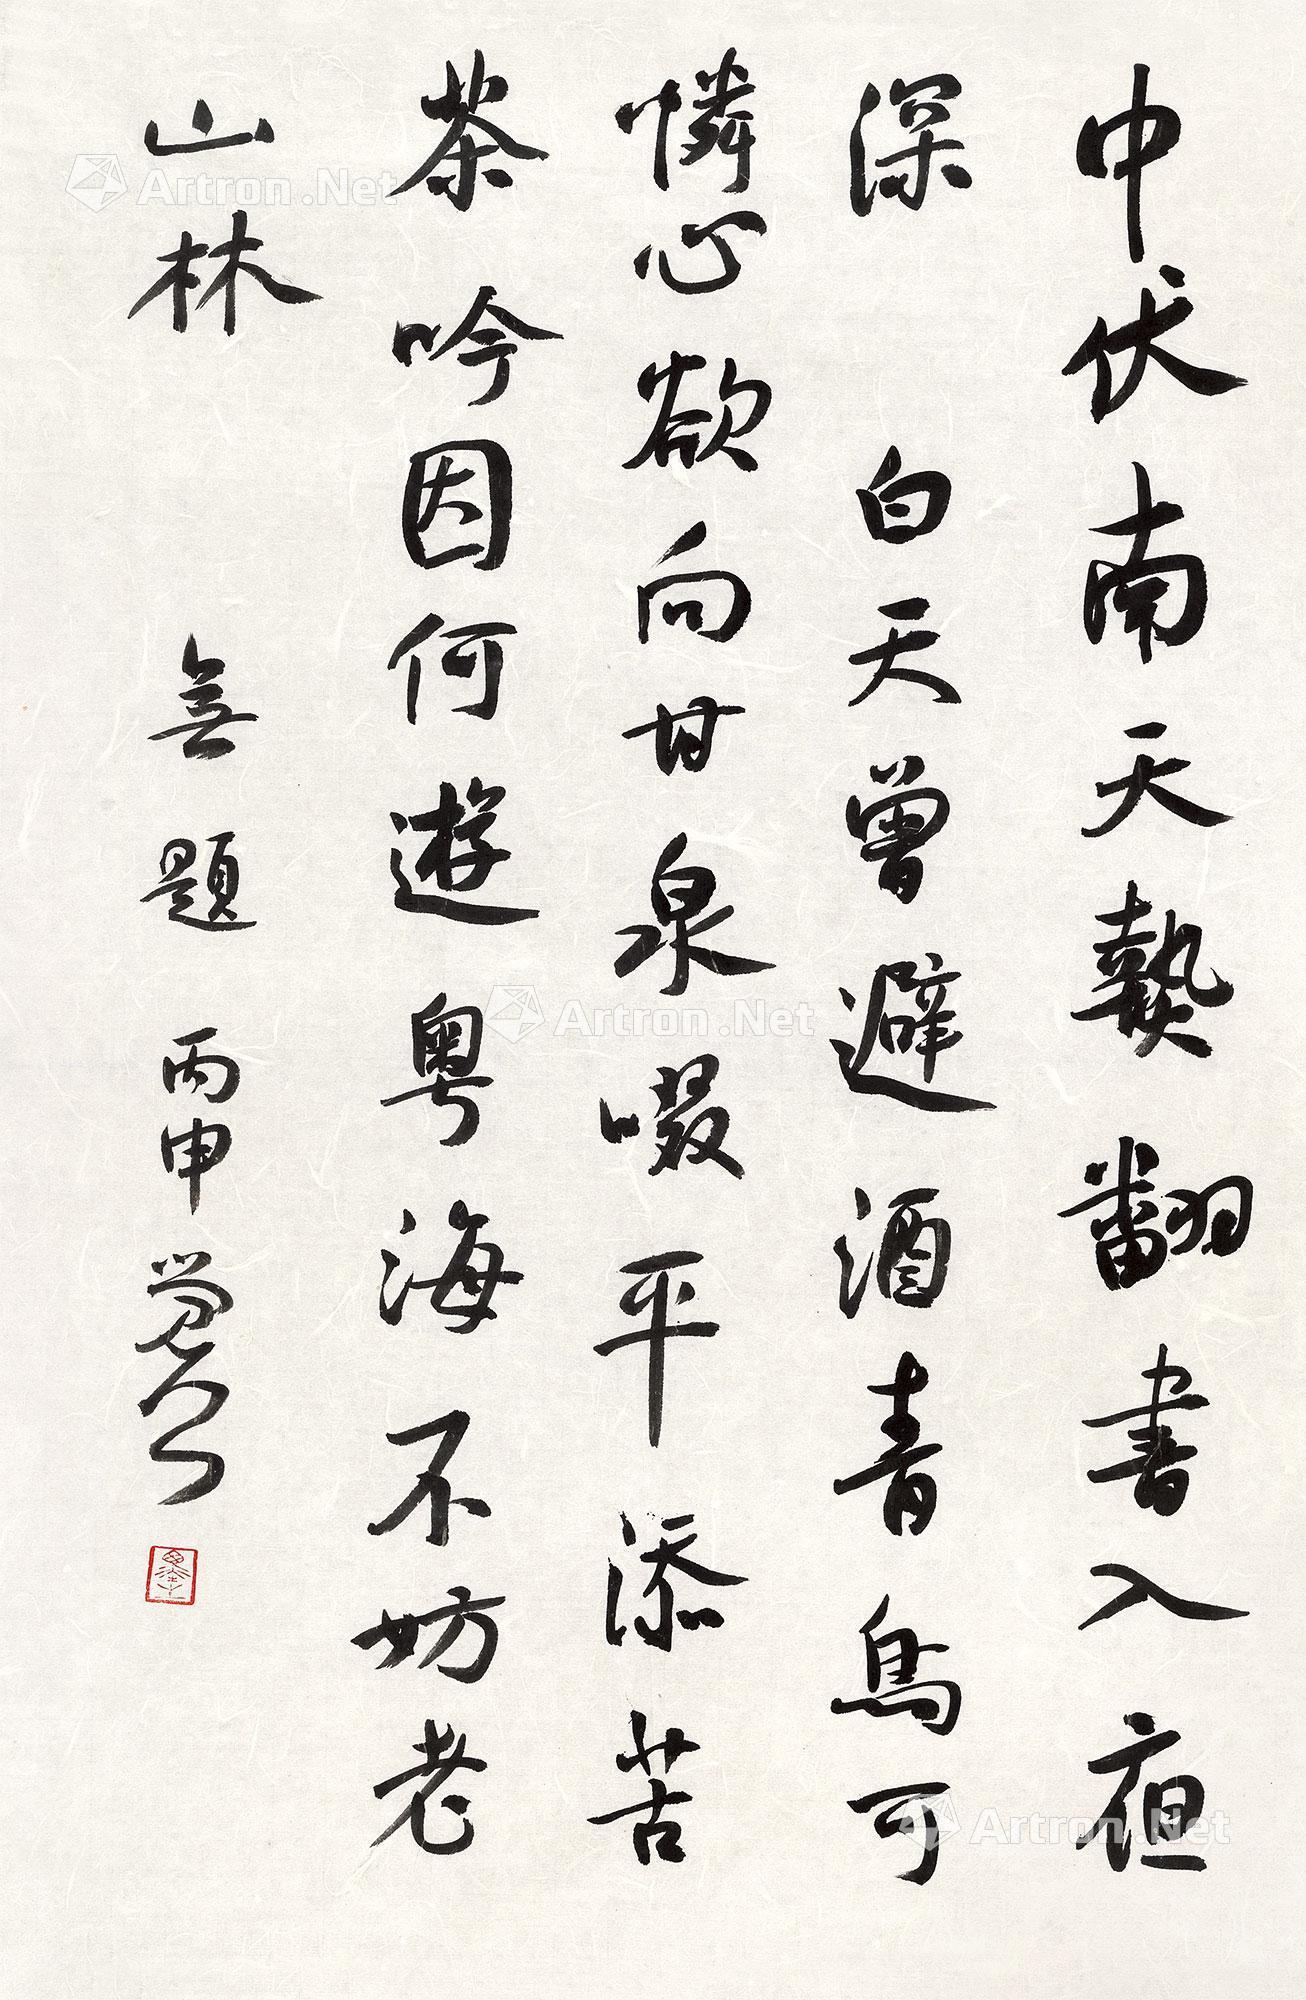 中伏南天熱翻書入夜
深白天曾避酒青鳥可
憐心欲向甘泉啜平添苦
茶吟因何遊粵海不妨老
山林
無題 丙申
Artron.Net
Artron.Net
Artron.Net